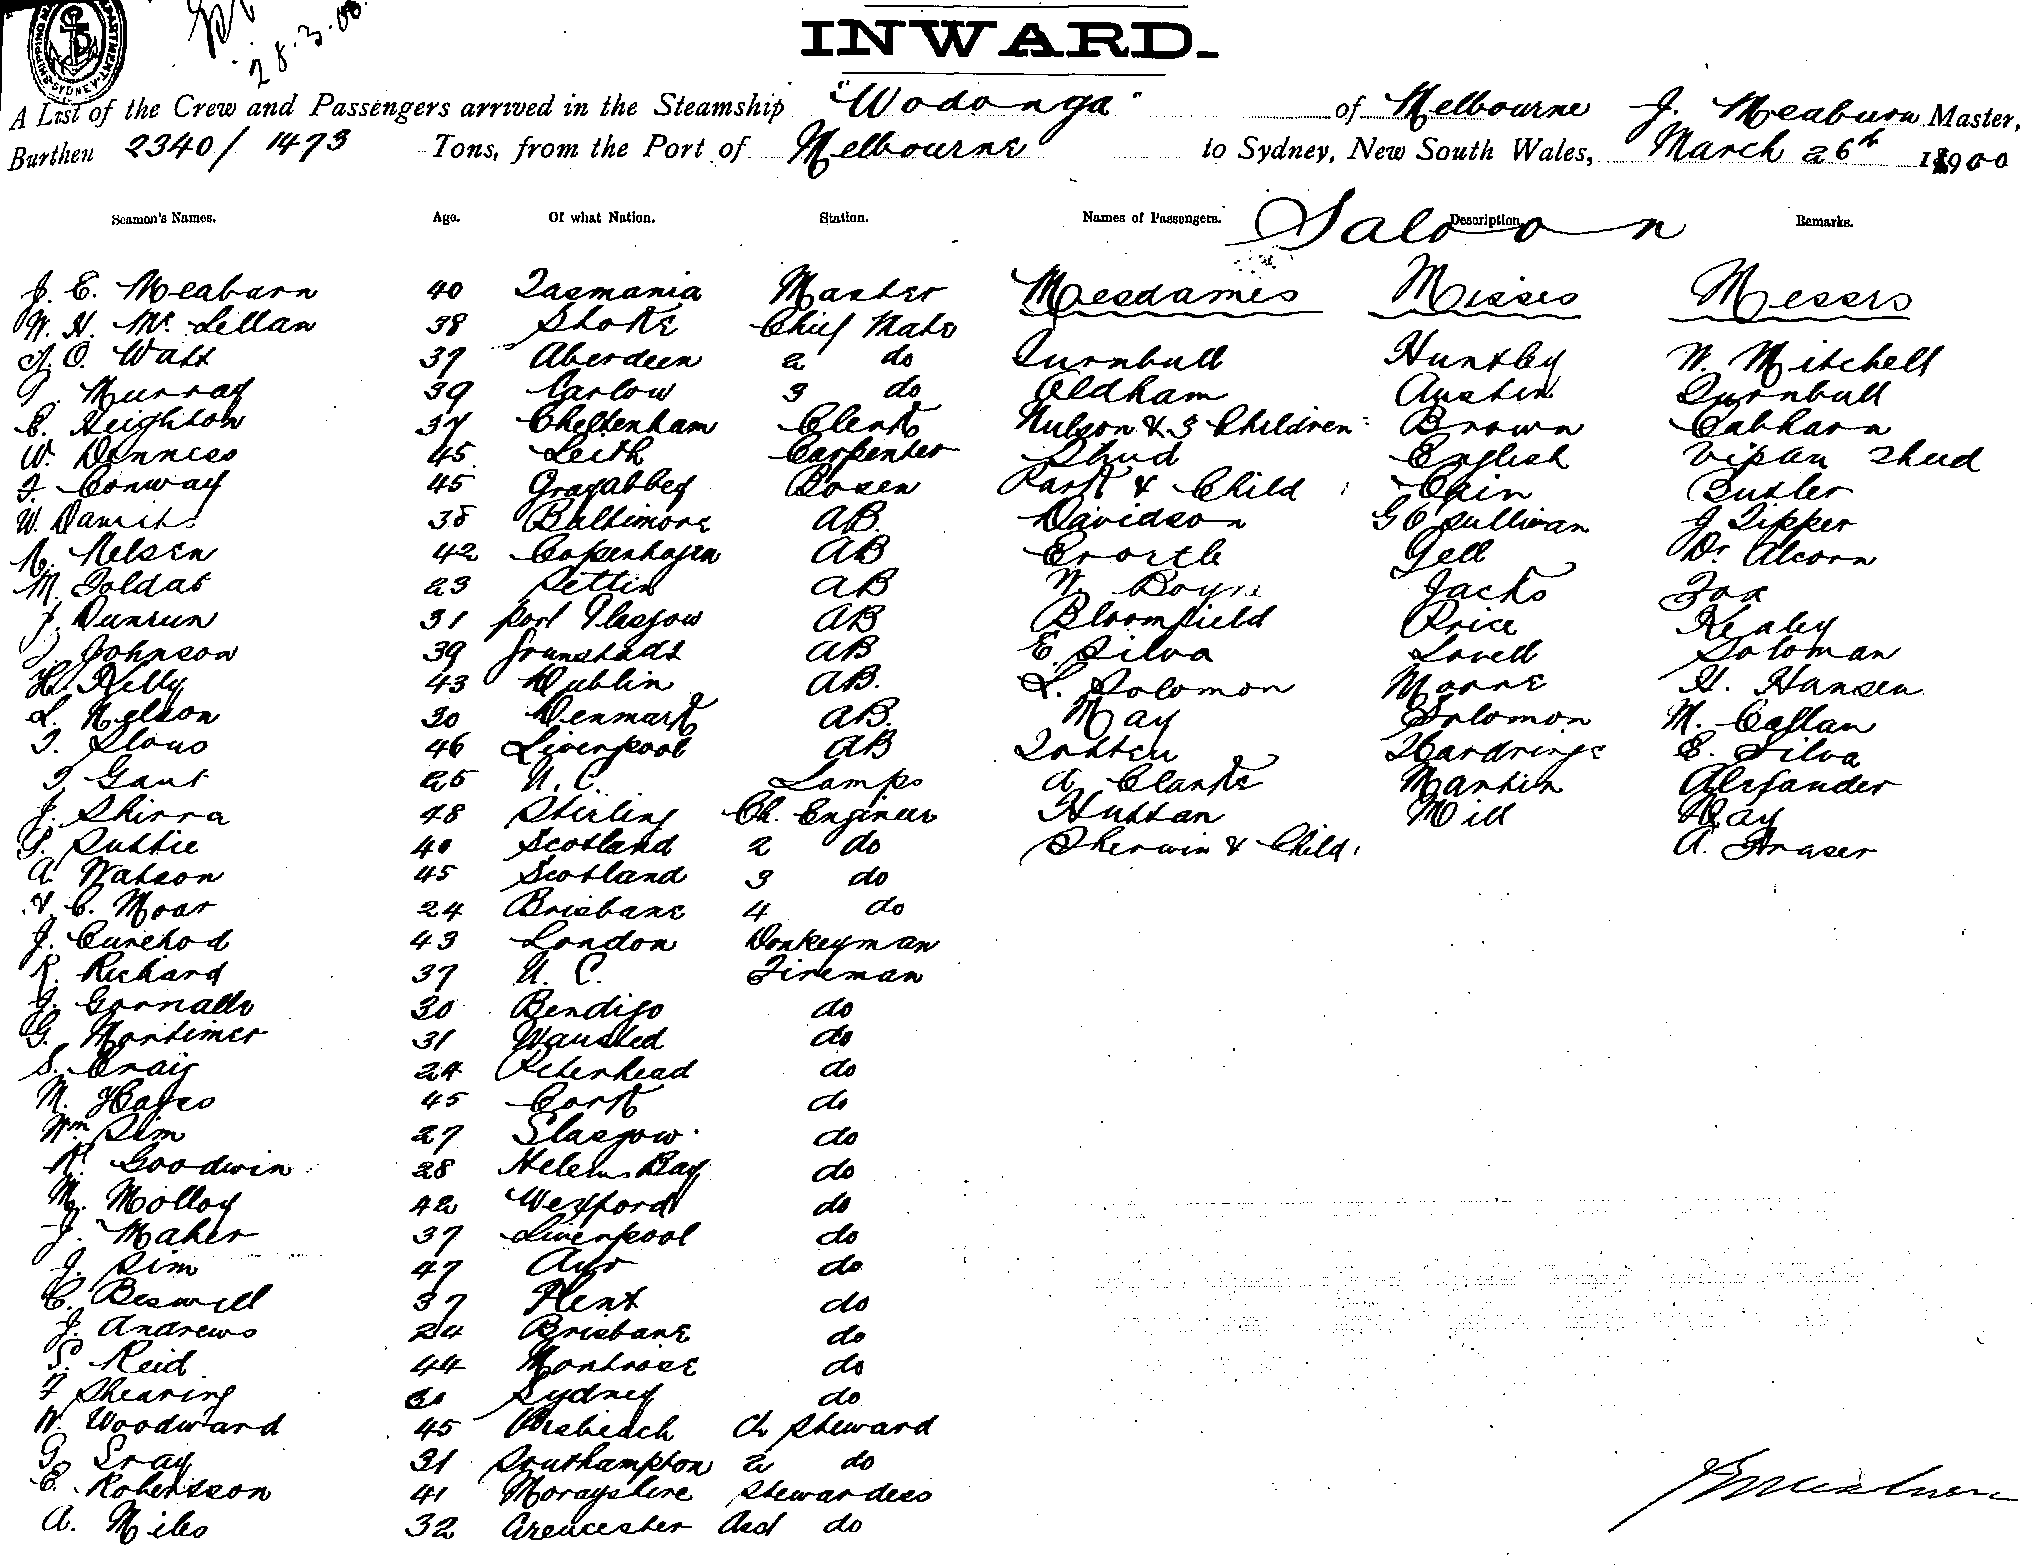 28.3.00
INWARD.
A List of the Crew and Passengers arrived in the Steamship "Wodonga" of Melbourne J. Meaburn Master,
Burthen 2340/1473 Tons, from the Port of Melbourne to Sydney, New South Wales, March 26th 1900
Seamen's Names. Age. Of what Nation. Station. Names of Passengers. Saloon Description Remarks.
J. E. Meaburn 40 Tasmania Master Mesdames Misses Messrs
W. H. McLellan 38 Stoke Chief Mate
O. Watt 37 Aberdeen 2 do Turnbull Huntley W. Mitchell
Murray 39 Carlow 3 do Oldham Austin Turnbull
E. Heighton 37 Cheltenham Clerk Nulson & 3 Children Brown
W. Denness 45 Leith Carpenter Shud English Vipan Shud
Conway 45 Grayabbey Bosen Park & Child Cain Butler
W. 38 Baltimore AB. Davidson G O'Sullivan J Tipper
Nelsen 42 Copenhagen AB Gell Dr. Alcorn
M. Toldat 23 Settin AB W. Jacks Fox
J. Dunrun 31 Port Glasgow AB Bloomfield Price Kealey
Johnson 39 AB E. Silva Lovell Soloman
H. Kelly 43 Dublin AB. L. Solomon H. Hansen
L. Nelson 30 Denmark AB. May Solomon M.
46 Liverpool AB Hardringe E. Silva
Gant 25 N. C. Lamps A. Clarke Martin Alexander
J. Shirra 48 Stirling Ch. Engineer Huttan Mill
Suttie 40 Scotland 2 do Sherwin & Child A. Fraser
A. Watson 45 Scotland 3 do
C. Moar 24 Brisbane 4 do
J. Curehod 43 London Donkeyman
R. Richard 37 N. C. Fireman
J. 30 Bendigo do
G. Mortimer 31 Wansted do
S. Craig 24 Peterhead do
M. Hayes 45 Cork do
Wm Sim 27 Glasgow do
R. Goodwin 28 Helens Bay do
M. Molloy 42 Wexford do
J. Maher 37 Liverpool do
J. Sim 47 Ayr do
C. Beswell 37 Kent do
J. Andrews 24 Brisbane do
Reid 44 Montrose do
Shearing Sydney do
W. Woodward 45 Wisbeach Ch Steward
G. Gray 31 Southampton 2 do
E. Robertson 41 Morayshire Stewardess
A. Miles 32 Asst do